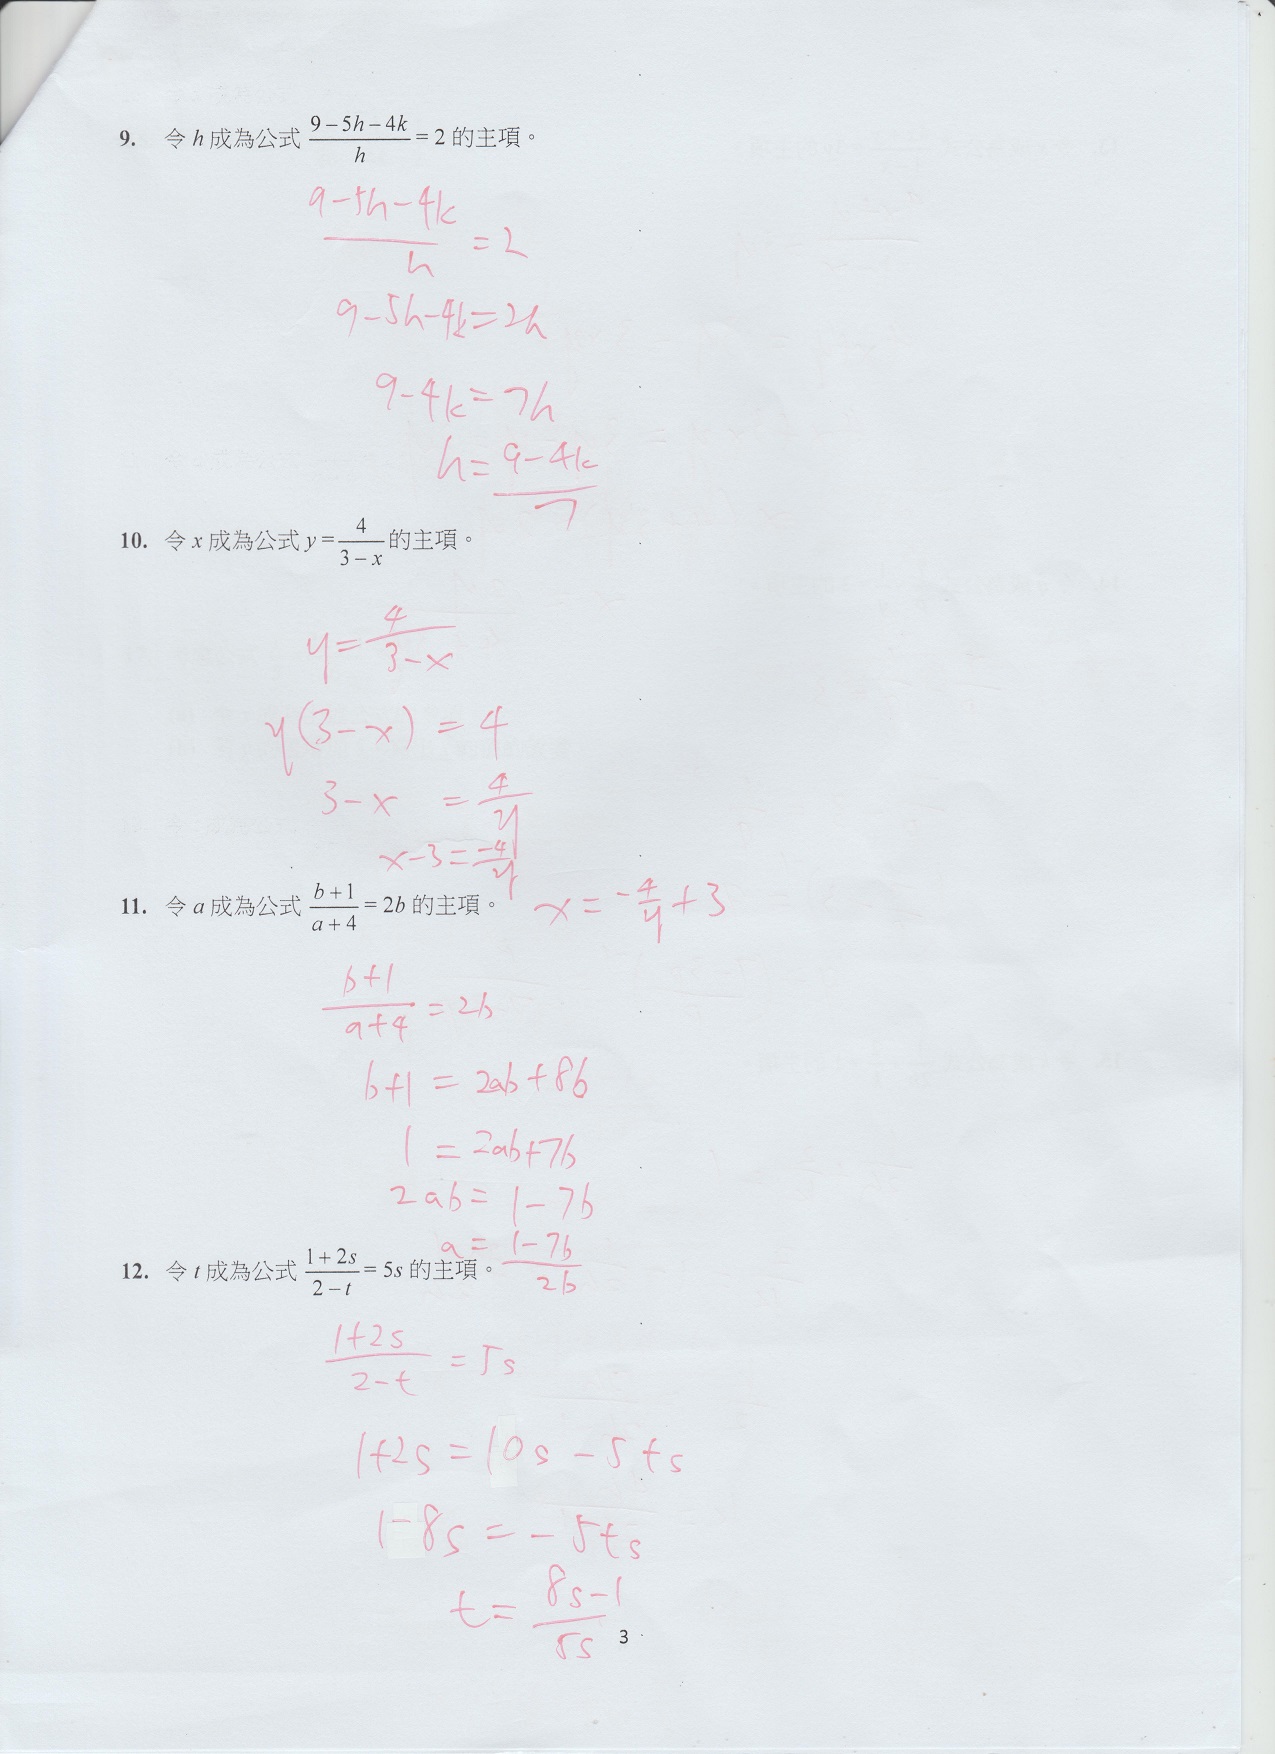 9. 令 h 成為公式 (9−5h−4k)/h = 2 的主項。
(9−5h−4k)/h = 2
9−5h−4k = 2h
9−4k = 7h
h = (9−4k)/7
10. 令 x 成為公式 y = 4/(3−x) 的主項。
y = 4/(3−x)
y(3−x) = 4
3−x = 4/y
x−3 = −4/y
x = −4/y + 3
11. 令 a 成為公式 (b+1)/(a+4) = 2b 的主項。
(b+1)/(a+4) = 2b
b+1 = 2ab+8b
1 = 2ab+7b
2ab = 1−7b
a = (1−7b)/2b
12. 令 t 成為公式 (1+2s)/(2−t) = 5s 的主項。
(1+2s)/(2−t) = 5s
1+2s = 10s − 5ts
1−8s = −5ts
t = (8s−1)/5s
3